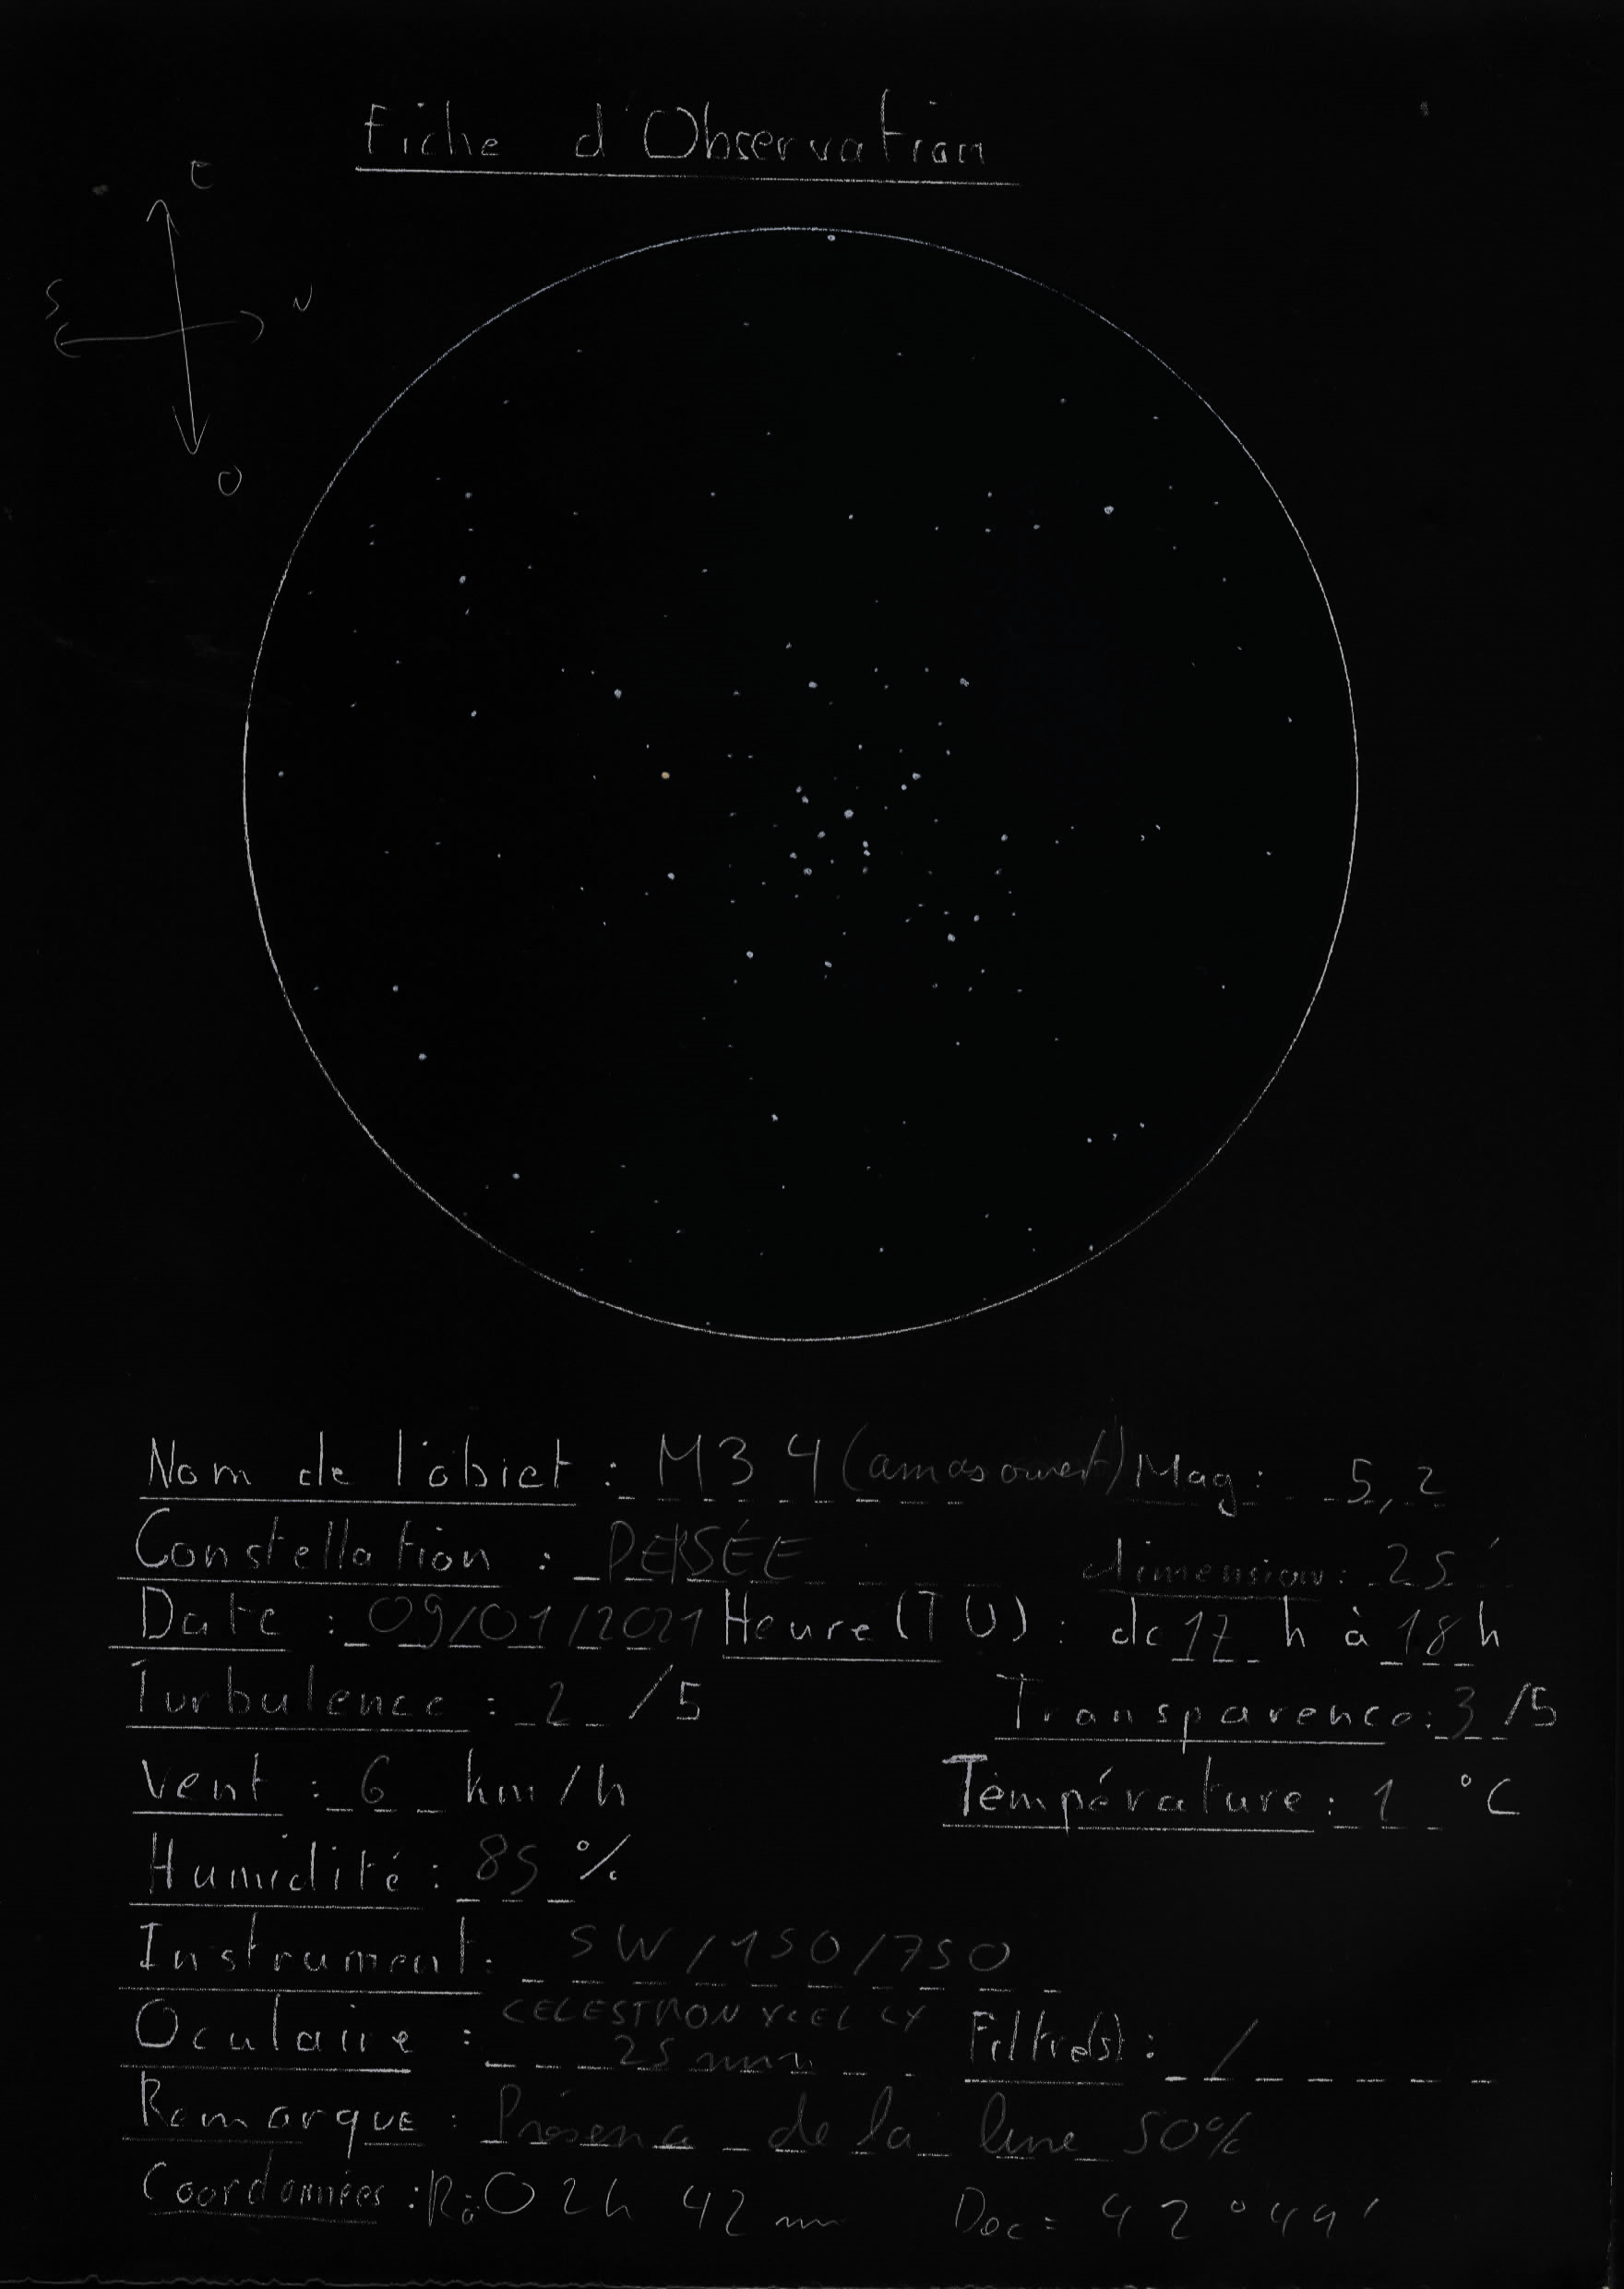 Fiche d'Observation
E
S N
O
Nom de l'objet : M34 (amas ouvert) Mag : 5,2
Constellation : PERSÉE dimension : 25'
Date : 09/01/2021 Heure (TU) : de 17 h à 18 h
Turbulence : 2 /5 Transparence : 3 /5
Vent : 6 km/h Température : 1 °C
Humidité : 85 %
Instrument : SW/150/750
Oculaire : CELESTRON XCEL LX Filtre(s) : /
25 mm
Remarque : Présence de la lune 50%
Coordonnées : Rà 02h 42m Dec = 42°44'